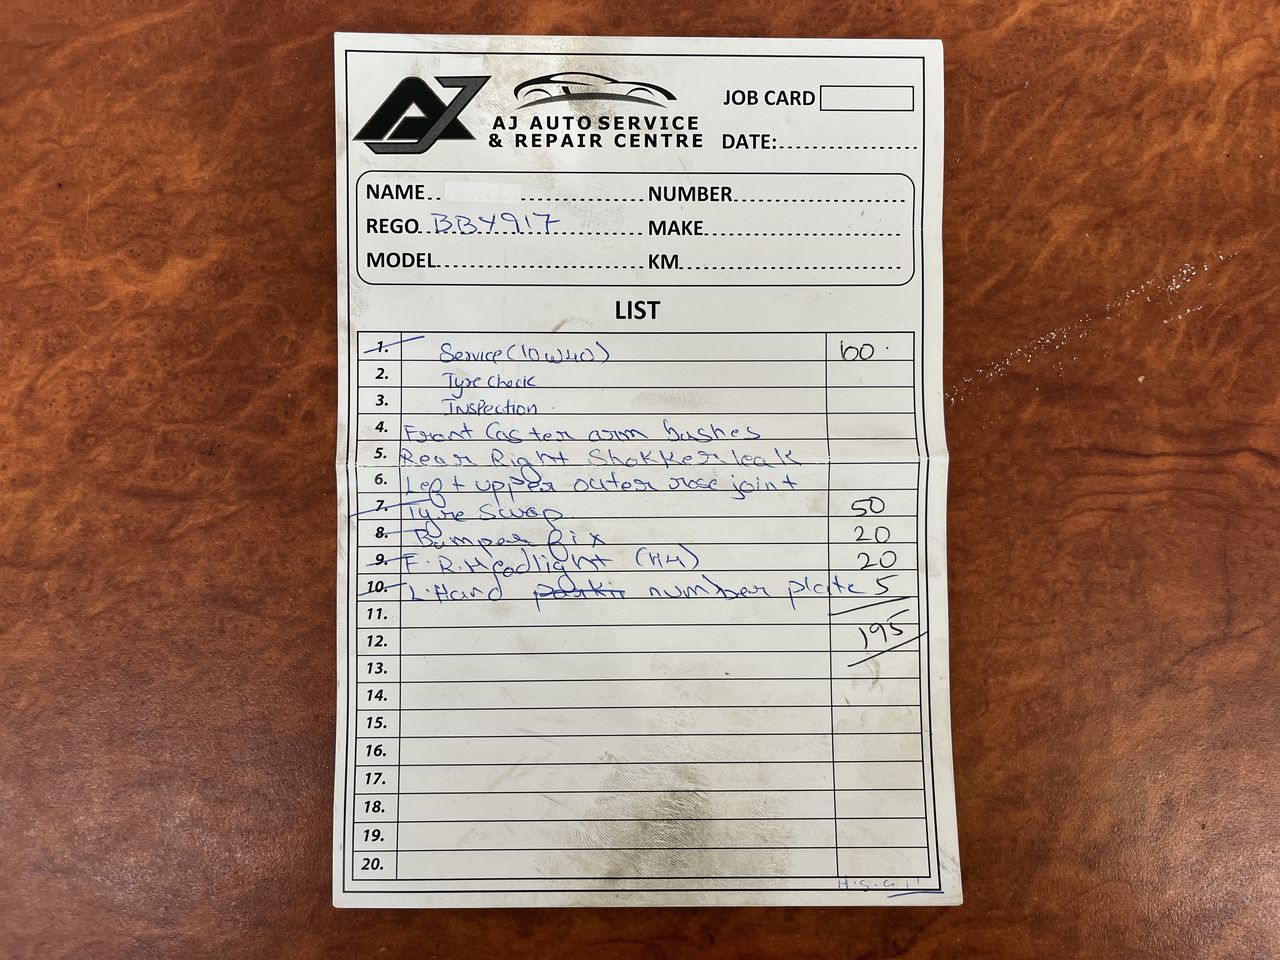 AJ
AJ AUTO SERVICE
& REPAIR CENTRE
JOB CARD
DATE:
NAME
NUMBER
REGO BBY917
MAKE
MODEL
KM
LIST
1. Service (10w40) 100.
2. Tyre check
3. Inspection.
4. Front Caster arm bushes
5. Rear Right Shokker leak
6. Left upper outer rose joint
7. Tyre Swap 50
8. Bumper fix 20
9. F.R.Headlight (H4) 20
10. L.Hand number plate 5
11.
12. 195
13.
14.
15.
16.
17.
18.
19.
20.